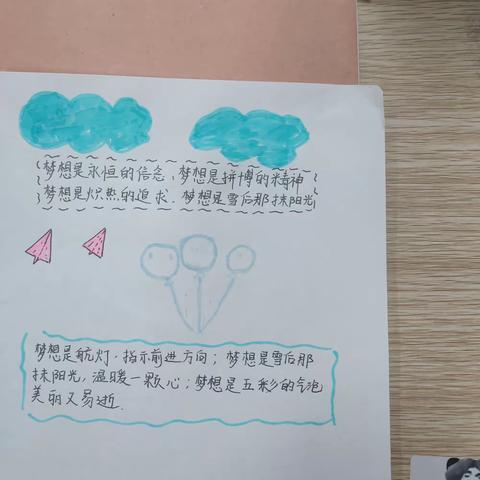 梦想是永恒的信念,梦想是拼博的精神
梦想是炽热的追求.梦想是雪后那抹阳光
梦想是航灯.指示前进方向;梦想是雪后那
抹阳光,温暖一颗心;梦想是五彩的气泡
美丽又易逝.